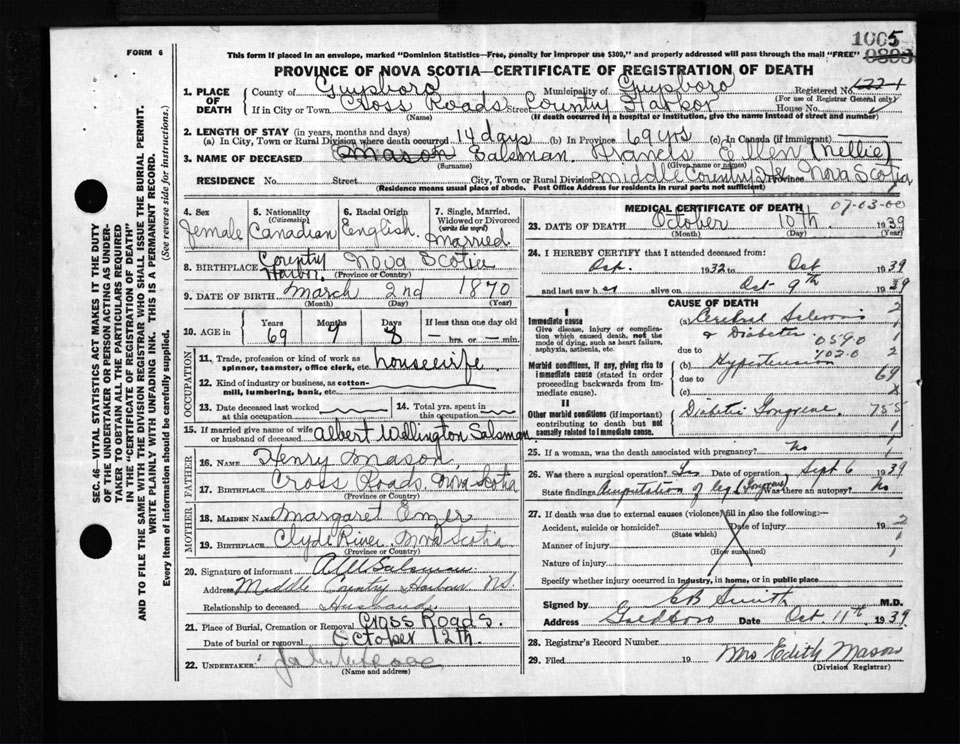 1005
0803
FORM 6
This form if placed in an envelope, marked "Dominion Statistics—Free, penalty for improper use $300," and properly addressed will pass through the mail "FREE"
PROVINCE OF NOVA SCOTIA—CERTIFICATE OF REGISTRATION OF DEATH
SEC. 46—VITAL STATISTICS ACT MAKES IT THE DUTY
OF THE UNDERTAKER OR PERSON ACTING AS UNDER-
TAKER TO OBTAIN ALL THE PARTICULARS REQUIRED
IN THE "CERTIFICATE OF REGISTRATION OF DEATH"
AND TO FILE THE SAME WITH THE DIVISION REGISTRAR WHO SHALL ISSUE THE BURIAL PERMIT.
WRITE PLAINLY WITH UNFADING INK. THIS IS A PERMANENT RECORD.
Every item of information should be carefully supplied. (See reverse side for instructions.)
1. PLACE OF DEATH County of Guysboro Municipality of Guysboro Registered No.
(For use of Registrar General only)
If in City or Town Cross Roads Street Country Harbor House No.
(Name) (If death occurred in a hospital or institution, give the name instead of street and number)
2. LENGTH OF STAY (in years, months and days)
(a) In City, Town or Rural Division where death occurred 14 days (b) In Province 69 yrs (c) In Canada (if immigrant)
3. NAME OF DECEASED Mason Salsman, Francis Ellen (Nellie)
(Surname) (Given name or names)
RESIDENCE No. Street City, Town or Rural Division Middle Country Province Nova Scotia
(Residence means usual place of abode. Post Office Address for residents in rural parts not sufficient)
4. Sex female
5. Nationality (Citizenship) Canadian
6. Racial Origin English
7. Single, Married, Widowed or Divorced (write the word) Married
8. BIRTHPLACE Country Harbor. Nova Scotia
(Province or Country)
9. DATE OF BIRTH March 2nd 1870
(Month) (Day) (Year)
10. AGE in Years 69 Months 7 Days 8 If less than one day old hrs. or min.
OCCUPATION
11. Trade, profession or kind of work as spinner, teamster, office clerk, etc. housewife
12. Kind of industry or business, as cotton-mill, lumbering, bank, etc.
13. Date deceased last worked at this occupation
14. Total yrs. spent in this occupation
15. If married give name of wife or husband of deceased Albert Wellington Salsman
FATHER
16. NAME Henry Mason
17. BIRTHPLACE Cross Roads, Nova Scotia
(Province or Country)
MOTHER
18. MAIDEN NAME Margaret
19. BIRTHPLACE Clyde River. Nova Scotia
(Province or Country)
20. Signature of informant A.W. Salsman
Address Middle Country Harbour N.S.
Relationship to deceased Husband.
21. Place of Burial, Cremation or Removal Cross Roads.
Date of burial or removal October 12th.
22. UNDERTAKER
(Name and address)
MEDICAL CERTIFICATE OF DEATH 07-03-00
23. DATE OF DEATH October 10th 1939
(Month) (Day) (Year)
24. I HEREBY CERTIFY that I attended deceased from
Oct. 1932 to Oct 1939
and last saw her alive on Oct 9th 1939
CAUSE OF DEATH
I
Immediate cause
Give disease, injury or complication which caused death, not the mode of dying, such as heart failure, asphyxia, asthenia, etc.
(a) Cerebral Sclerosis 2
& Diabetes
059.0
due to
102.0
Morbid conditions, if any, giving rise to immediate cause (stated in order proceeding backwards from immediate cause).
(b) Hypertension 2
due to 69
(c) X
II
Other morbid conditions (if important) contributing to death but not causally related to immediate cause.
Diabetic Gangrene. 755
25. If a woman, was the death associated with pregnancy? No
26. Was there a surgical operation? Yes Date of operation Sept 6 1939
State findings Amputation of leg (Gangrene) Was there an autopsy? No
27. If death was due to external causes (violence) fill in also the following:—
Accident, suicide or homicide? Date of injury 19 2
(State which)
Manner of injury
(How sustained)
Nature of injury
Specify whether injury occurred in industry, in home, or in public place
Signed by C B Smith M.D.
Address Goldboro Date Oct. 11th 1939
28. Registrar's Record Number
29. Filed 19 Mrs Edith Mason
(Division Registrar)